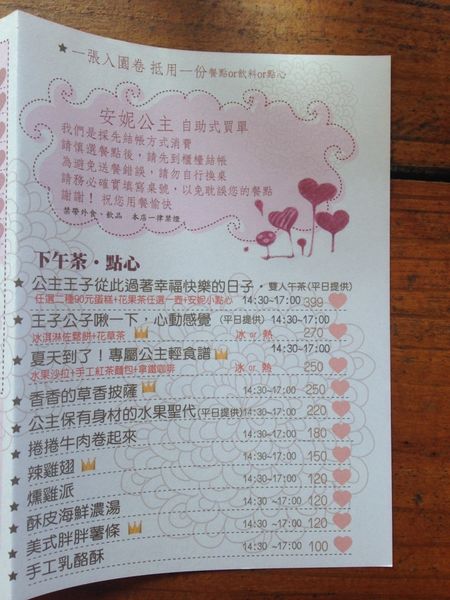 ★一張入園卷 抵用一份餐點or飲料or點心
安妮公主 自助式買單
我們是採先結帳方式消費
請慎選餐點後，請先到櫃檯結帳
為避免送餐錯誤，請勿自行換桌
請務必確實填寫桌號，以免耽誤您的餐點
謝謝！祝您用餐愉快
禁帶外食、飲品 本店一律禁煙
下午茶・點心
★ 公主王子從此過著幸福快樂的日子・雙人午茶(平日提供)
任選二種90元蛋糕+花果茶任選一壺+安妮小點心 14:30~17:00 399
★ 王子公子啾一下，心動感覺 (平日提供) 14:30~17:00
冰淇淋佐鬆餅+花草茶 冰 or 熱 270
★ 夏天到了！專屬公主輕食譜 14:30~17:00
水果沙拉+手工紅茶麵包+拿鐵咖啡 冰 or 熱 250
★ 香香的草香披薩 14:30~17:00 250
★ 公主保有身材的水果聖代(平日提供) 14:30~17:00 220
★ 捲捲牛肉卷起來 14:30~17:00 180
★ 辣雞翅 14:30~17:00 150
★ 燻雞派 14:30~17:00 120
★ 酥皮海鮮濃湯 14:30~17:00 120
★ 美式胖胖薯條 14:30~17:00 120
★ 手工乳酪酥 14:30~17:00 100